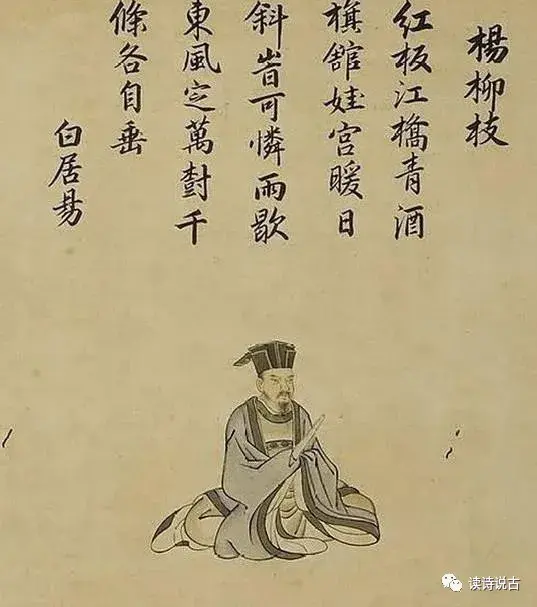 楊柳枝
紅板江橋青酒
旗舘娃宮暖日
斜旹可憐雨歇
東風定萬樹千
條各自垂
白居易
读诗说古